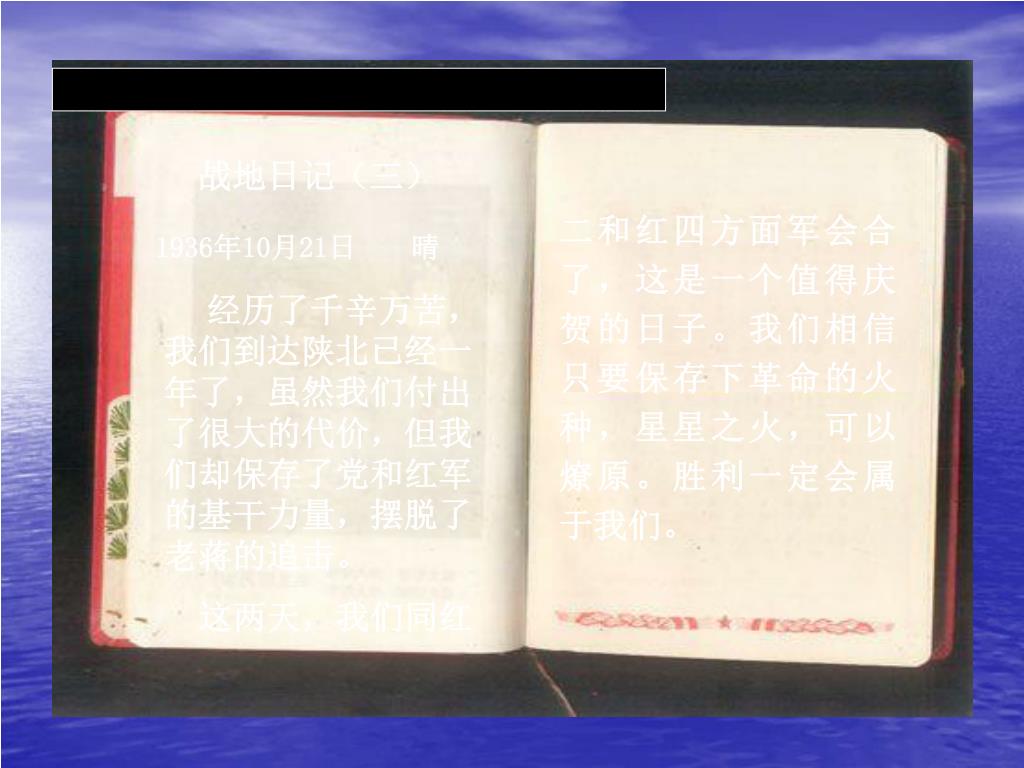 战地日记（三）
1936年10月21日 晴
经历了千辛万苦，
我们到达陕北已经一
年了，虽然我们付出
了很大的代价，但我
们却保存了党和红军
的基干力量，摆脱了
老蒋的追击。
这两天，我们同红
二和红四方面军会合
了，这是一个值得庆
贺的日子。我们相信
只要保存下革命的火
种，星星之火，可以
燎原。胜利一定会属
于我们。